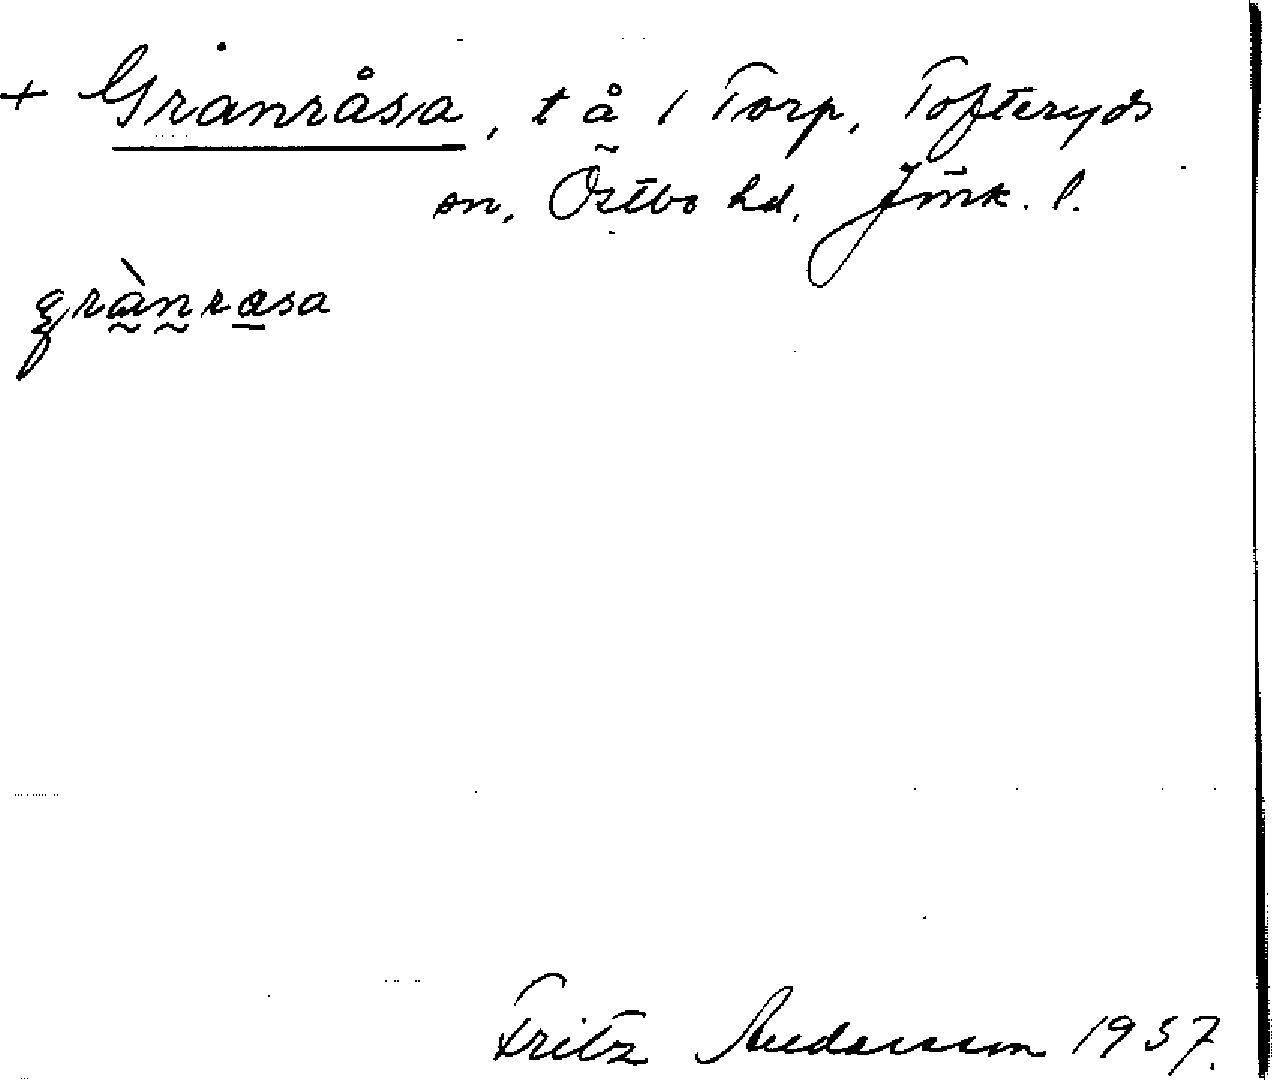 + Granråsa, t å 1 Torp, Tofteryds
sn, Östbo hd, Jönk. l.
grànrasa
Fritz Andersson 1937.